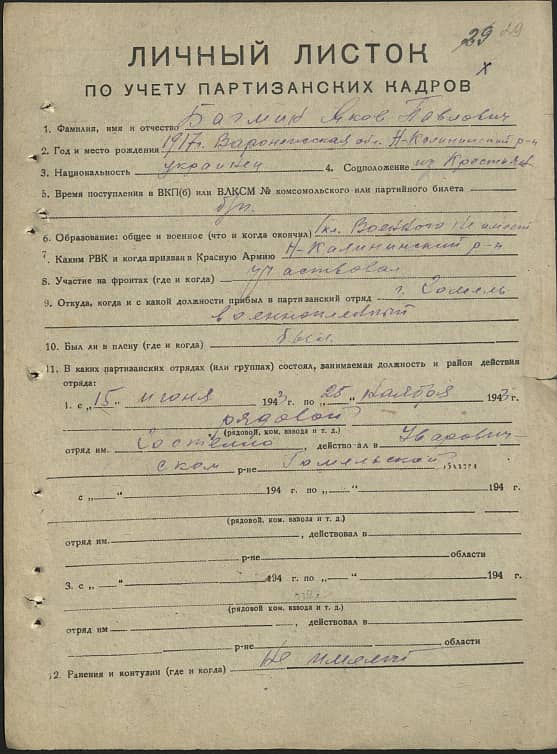 29 29
ЛИЧНЫЙ ЛИСТОК
ПО УЧЕТУ ПАРТИЗАНСКИХ КАДРОВ
1. Фамилия, имя и отчество Багмик Яков Павлович
2. Год и место рождения 1917 г. Варонежская обл. Н-Калининский р-н
3. Национальность украинец 4. Соцположение из Крестьян
5. Время поступления в ВКП(б) или ВЛКСМ № комсомольского или партийного билета
б/п.
6. Образование: общее и военное (что и когда окончил) 1 кл. Военного не имеет
7. Каким РВК и когда призван в Красную Армию Н-Калининский р-н
8. Участие на фронтах (где и когда) участвовал
9. Откуда, когда и с какой должности прибыл в партизанский отряд г. Гомель
военнопленный
10. Был ли в плену (где и когда) был
11. В каких партизанских отрядах (или группах) состоял, занимаемая должность и район действия
отряда:
1. с „15" июня 1943 г. по „25" Ноября 1943 г.
рядовой
(рядовой, ком. взвода и т. д.)
отряд им. , действо ал в Уварович-
ском р-не Гомельской
с „ " 194 г. по „ " 194 г.
(рядовой, ком. взвода и т. д.)
отряд им. , действовал в
р-не области
3. с „ " 194 г. по „ " 194 г.
(рядовой, ком. взвода и т. д.)
отряд им , действовал в
р-не области
2. Ранения и контузии (где и когда) Не имел